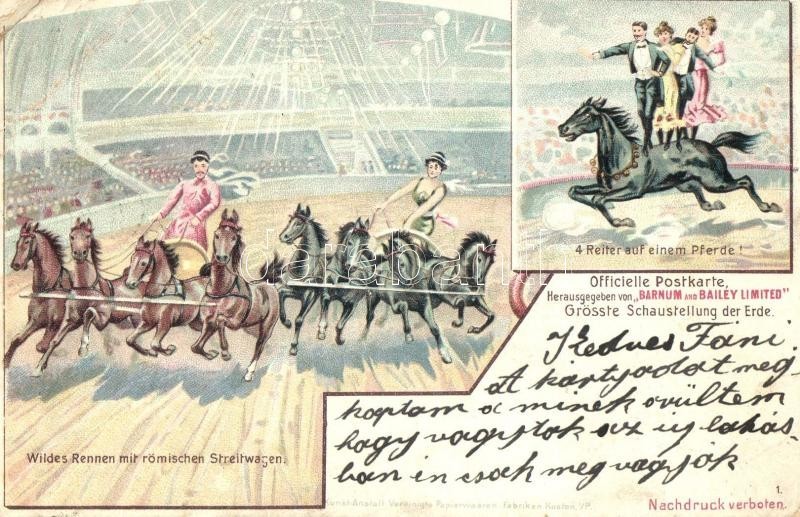 4 Reiter auf einem Pferde!
Officielle Postkarte,
Herausgegeben von „BARNUM AND BAILEY LIMITED"
Grösste Schaustellung der Erde.
Kedves Fáni.
At kártyádat meg
kaptam a minek örültem
hogy vagytok az uj lakás-
ban én csak meg vagyok
Wildes Rennen mit römischen Streitwagen.
Kunst-Anstalt Vereinigte Papierwaaren Fabriken Kosten, /P.
1.
Nachdruck verboten.
darabanth